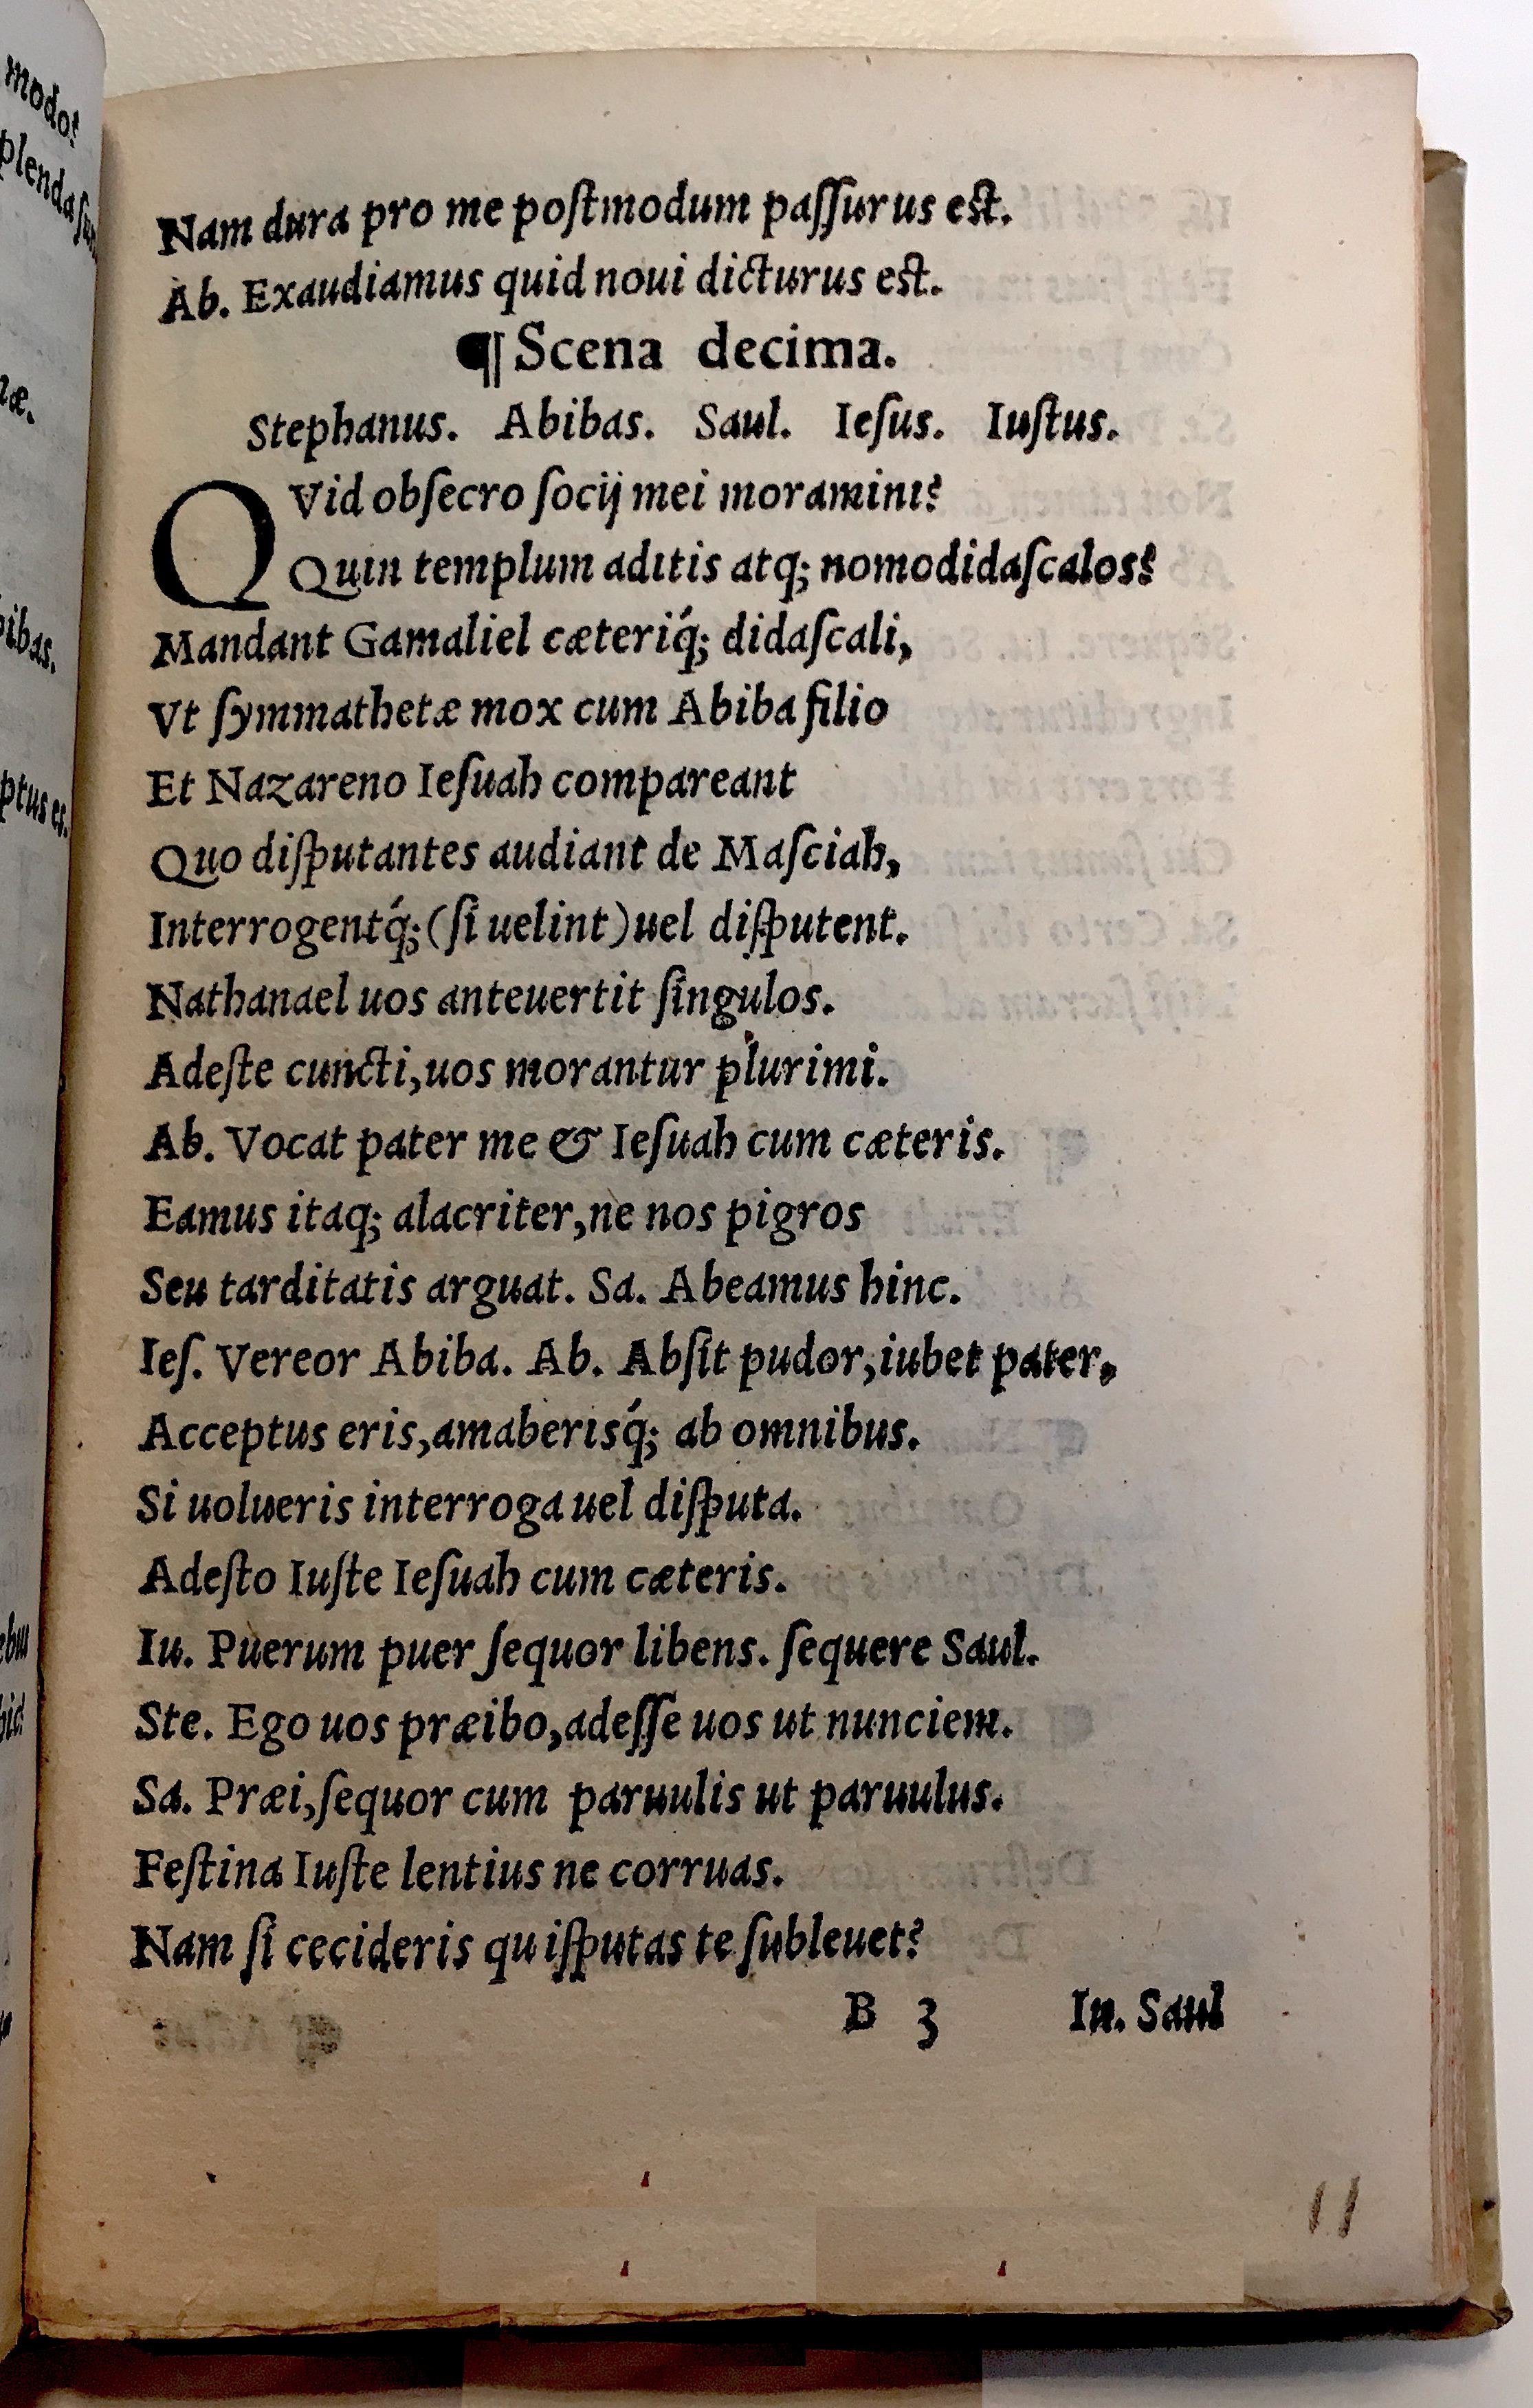 modo?
Nam dura pro me poſtmodum paſſurus eſt.
Ab. Exaudiamus quid noui dicturus eſt.
¶ Scena decima.
Stephanus. Abibas. Saul. Ieſus. Iuſtus.
QVid obſecro ſocij mei moramini?
Quin templum aditis atq; nomodidaſcalos?
Mandant Gamaliel cæteriq́; didaſcali,
Vt ſymmathetæ mox cum Abiba filio
Et Nazareno Ieſuah compareant
Quo diſputantes audiant de Maſciah,
Interrogentq́; (ſi uelint) uel diſputent.
Nathanael uos anteuertit ſingulos.
Adeſte cuncti, uos morantur plurimi.
Ab. Vocat pater me & Ieſuah cum cæteris.
Eamus itaq; alacriter, ne nos pigros
Seu tarditatis arguat. Sa. Abeamus hinc.
Ieſ. Vereor Abiba. Ab. Abſit pudor, iubet pater,
Acceptus eris, amaberisq́; ab omnibus.
Si uolueris interroga uel diſputa.
Adeſto Iuſte Ieſuah cum cæteris.
Iu. Puerum puer ſequor libens. ſequere Saul.
Ste. Ego uos præibo, adeſſe uos ut nunciem.
Sa. Præi, ſequor cum paruulis ut paruulus.
Feſtina Iuſte lentius ne corruas.
Nam ſi cecideris quiſputas te ſubleuet?
B 3 Iu. Saul
11